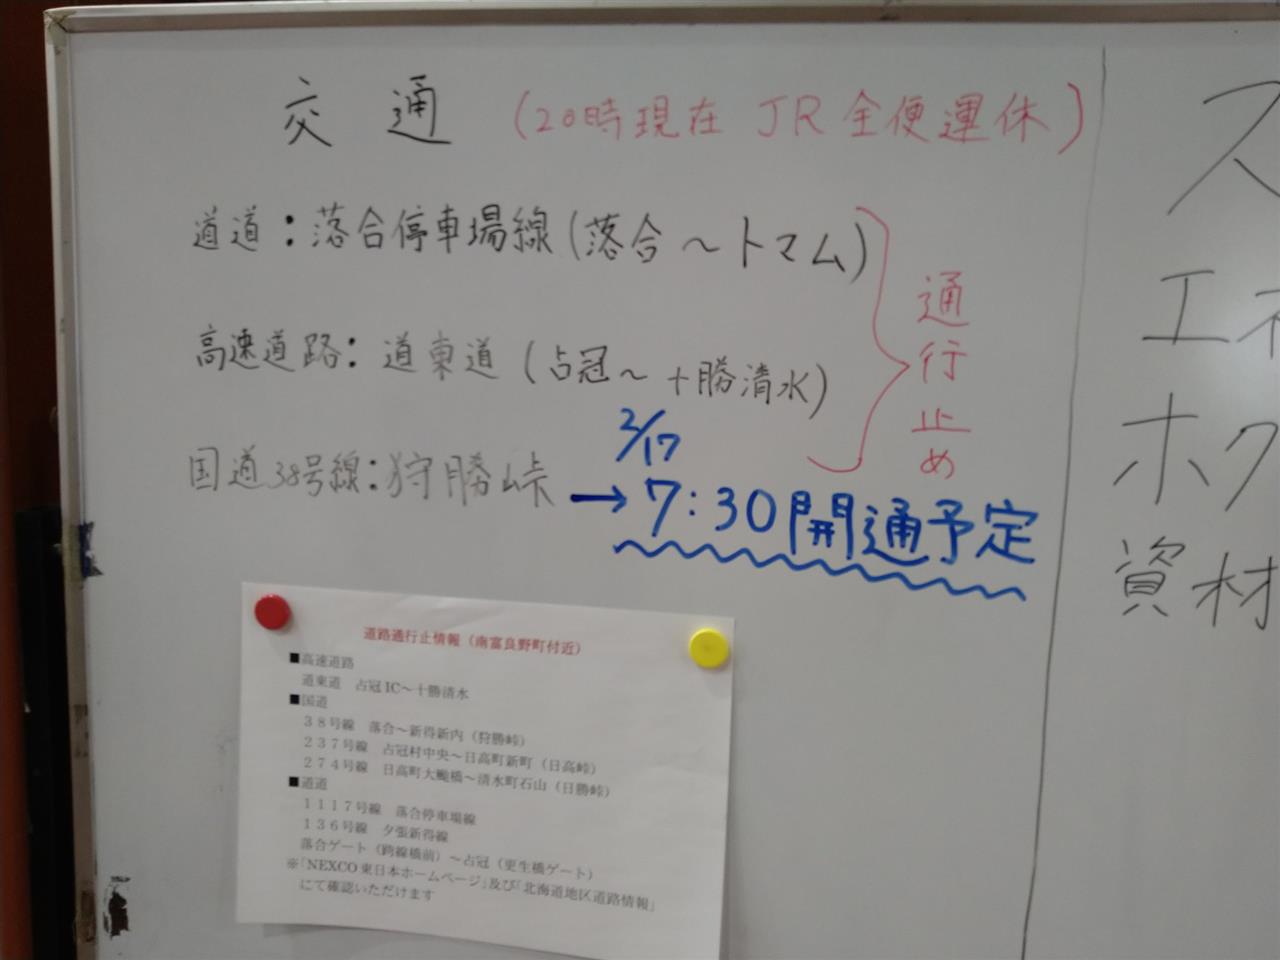 交通 (20時現在 JR全便運休)
道道:落合停車場線(落合～トマム)
高速道路:道東道(占冠～十勝清水)
国道38号線:狩勝峠
通行止め
2/17
→7:30開通予定
ス
エ
ホク
資材
道路通行止情報(南富良野町付近)
■高速道路
道東道 占冠IC～十勝清水
■国道
38号線 落合～新得新内(狩勝峠)
237号線 占冠村中央～日高町新町(日高峠)
274号線 日高町大颱橋～清水町石山(日勝峠)
■道道
1117号線 落合停車場線
136号線 夕張新得線
落合ゲート(跨線橋前)～占冠(更生橋ゲート)
※「NEXCO東日本ホームページ」及び「北海道地区道路情報」
にて確認いただけます